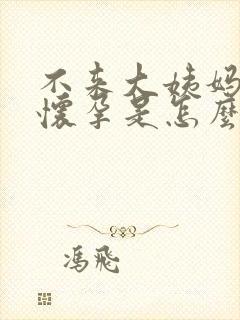 不来大姨妈
懷孕是怎麼
馮飛